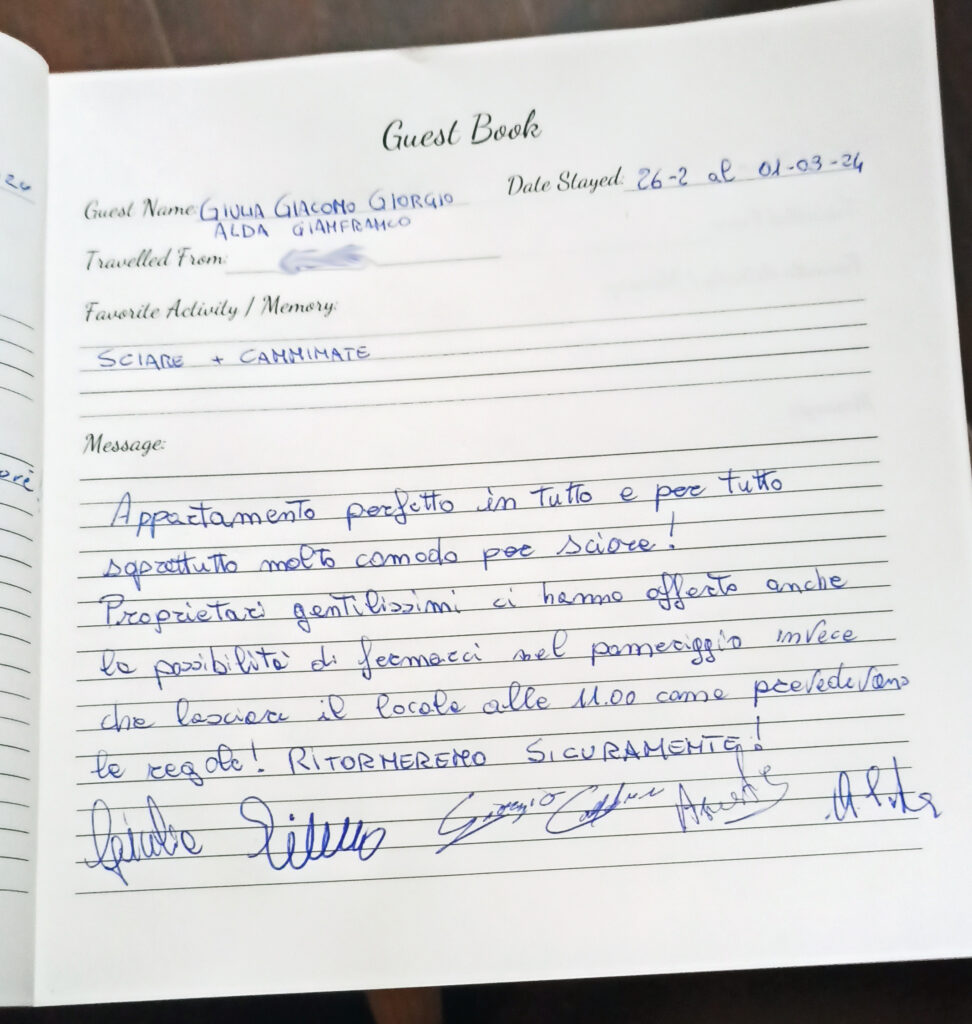 24
Guest Book
Date Stayed: 26-2 al 01-03-24
Guest Name: GIULIA GIACOMO GIORGIO
ALDA GIANFRANCO
Travelled From:
Favorite Activity / Memory:
SCIARE + CAMMINATE
Message:
Appartamento perfetto in tutto e per tutto
soprattutto molto comodo per sciare!
Proprietari gentilissimi ci hanno offerto anche
la possibilità di fermarci nel pomeriggio invece
che lasciare il locale alle 11.00 come prevedevano
le regole! RITORNEREMO SICURAMENTE!
Giulia Giorgio